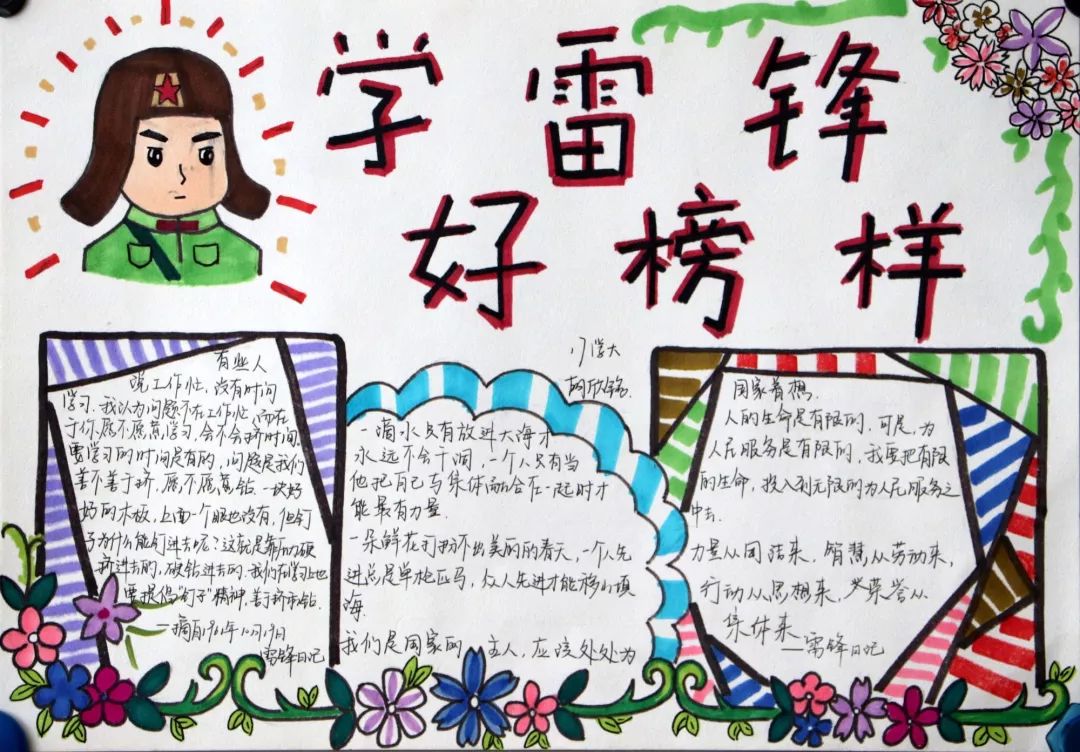 学雷锋
好榜样
有些人
说工作忙、没有时间
学习.我认为问题不在工作忙,而在
于你愿不愿意学习,会不会挤时间.
要学习的时间是有的,问题是我们
善不善于挤,愿不愿意钻.一块好
好的木板,上面一个眼也没有,但钉
子为什么能钉进去呢?这就是靠压力硬
挤进去的,硬钻进去的.我们在学习上也
要提倡"钉子"精神,善于挤和钻.
—摘自1961年10月19日
雷锋日记
胡欣铭
一滴水只有放进大海才
永远不会干涸,一个人只有当
他把自己与集体融合在一起时才
能最有力量.
一朵鲜花打扮不出美丽的春天,一个人先
进总是单枪匹马,众人先进才能移山填
海.
我们是国家的主人,应该处处为
国家着想.
人的生命是有限的,可是,为
人民服务是有限的,我要把有限
的生命,投入到无限的为人民服务之
中去.
力量从团结来,智慧从劳动来,
行动从思想来,荣誉从
集体来
—雷锋日记